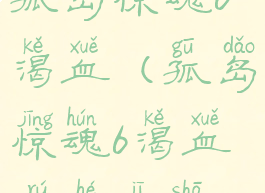 孤岛惊魂6
kě xuě gū dǎo
渴血(孤岛
jīng hún kě xuě
惊魂6渴血
rú hé jī shā